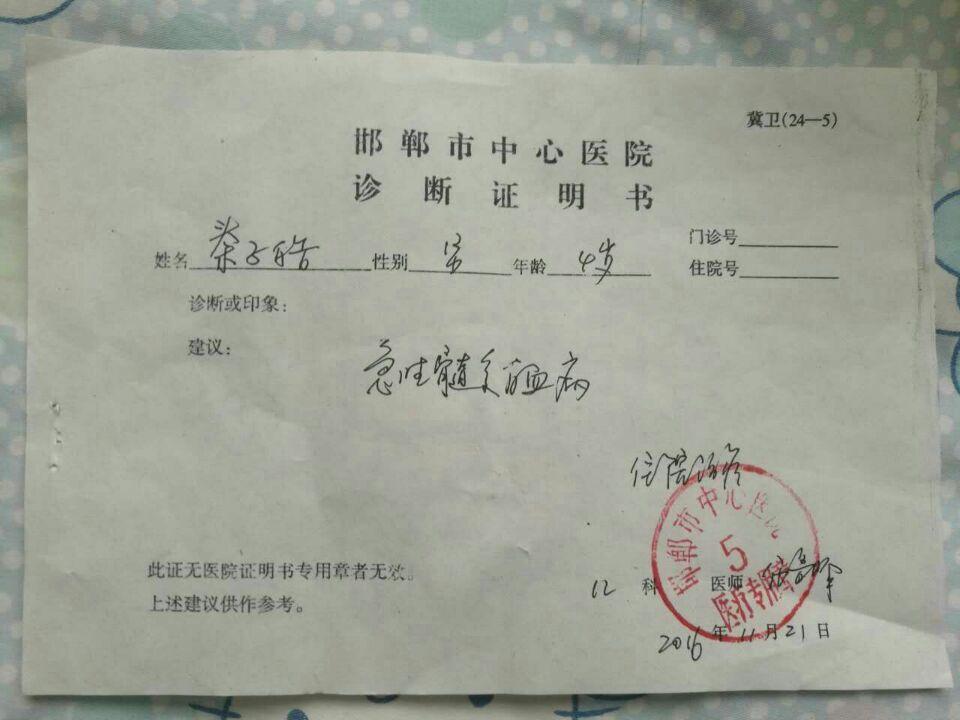 冀卫(24—5)
邯郸市中心医院
诊断证明书
门诊号
姓名 荣子皓 性别 男 年龄 4岁 住院号
诊断或印象：
建议：
急性髓系白血病
住院治疗
邯郸市中心医院
5
此证无医院证明书专用章者无效。
科 医师
上述建议供作参考。
2016年11月21日